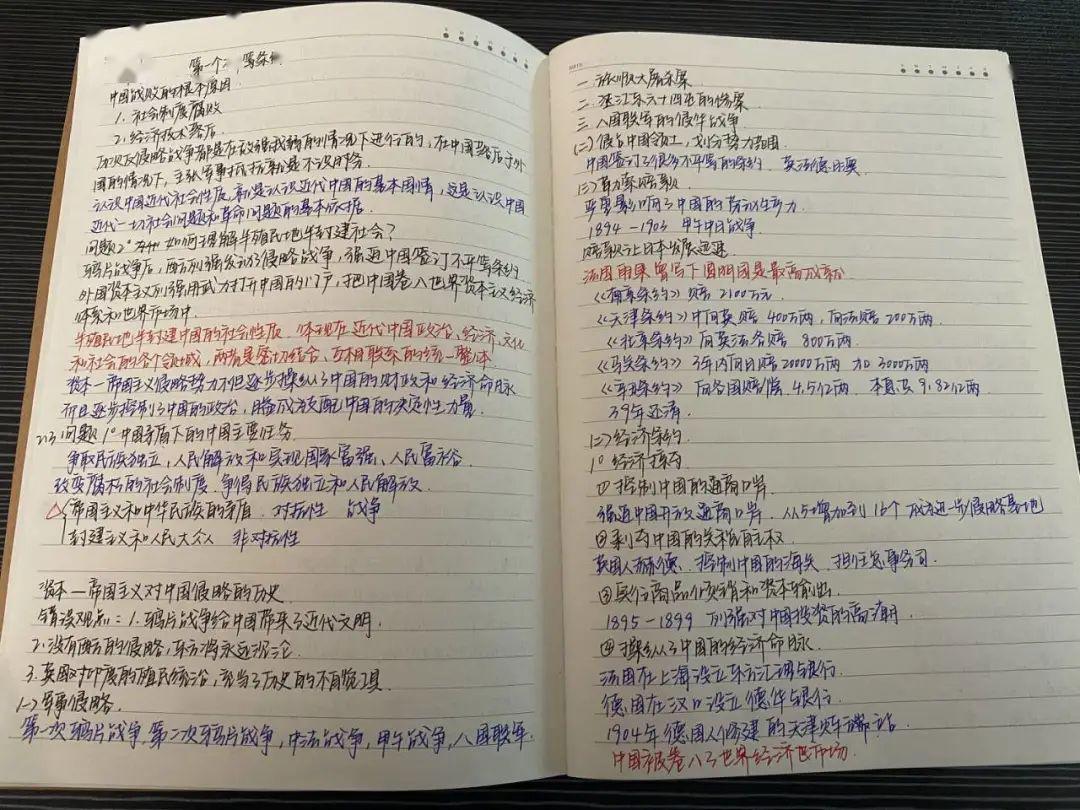 第一个:
中国战败的根本原因
1. 社会制度腐败
2. 经济技术落后
历次反侵略战争都是在敌强我弱的情况下进行的, 在中国落后于外
国的情况下, 主张军事抵抗就是不识时务
认识中国近代社会性质, 就是认识近代中国的基本国情, 这是认识中国
近代一切社会问题和革命问题的基本依据.
问题2° 如何理解半殖民地半封建社会?
鸦片战争后, 西方列强发动了侵略战争, 强迫中国签订不平等条约
外国资本主义列强用武力打开中国的门户, 把中国卷入世界资本主义经济
体系和世界市场中.
半殖民地半封建中国的社会性质 体现在近代中国政治、经济、文化
和社会的各个领域, 两者是密切结合、互相联系的统一整体
资本一帝国主义侵略势力不但逐步操纵了中国的财政和经济命脉
而且逐步控制了中国的政治, 日益成为支配中国的决定性力量.
2.3 问题1° 中国矛盾下的中国主要任务
争取民族独立, 人民解放和实现国家富强、人民富裕
改变腐朽的社会制度、争得民族独立和人民解放.
帝国主义和中华民族的矛盾. 对抗性 战争
封建主义和人民大众 非对抗性
资本一帝国主义对中国侵略的历史
错误观点: 1. 鸦片战争给中国带来了近代文明.
2. 没有西方的侵略, 东方将永远沉沦.
3. 英国对印度的殖民统治, 充当了历史的不自觉工具.
(一) 军事侵略.
第一次鸦片战争, 第二次鸦片战争, 中法战争, 甲午战争, 八国联军.
一 旅顺大屠杀案
二. 江东六十四屯的惨案
三. 八国联军的侵华战争
(二) 侵占中国领土, 划分势力范围.
中国签订了很多不平等的条约 英法德日奥
(三) 勒索赔款
严重影响了中国的劳动生产力
1894 - 甲午中日战争
赔款让日本发展迅速
法国雨果曾写下圆明园是最高成就
《南京条约》赔 2100万元.
《天津条约》中向英赔 400万两, 向法赔 200万两
《北京条约》向英法各赔 800万两
《马关条约》3年内向日赔 20000万两 加 3000万两
《辛丑条约》向各国赔偿 4.5亿两 本息共 9.8亿两
39年还清
(二) 经济条约.
1° 经济掠夺
① 控制中国的通商口岸
强迫中国开放通商口岸. 从5增加到16个 成为进一步侵略基地
② 剥夺中国的关税自主权
英国人赫德. 控制中国的海关. 担任总事务司.
③ 实行商品倾销和资本输出
1895 - 1899 列强对中国投资的高潮期
④ 操纵了中国的经济命脉
法国在上海设立东方汇理银行
德国在汉口设立德华银行
1904年德国人修建的天津
中国被卷入了世界经济